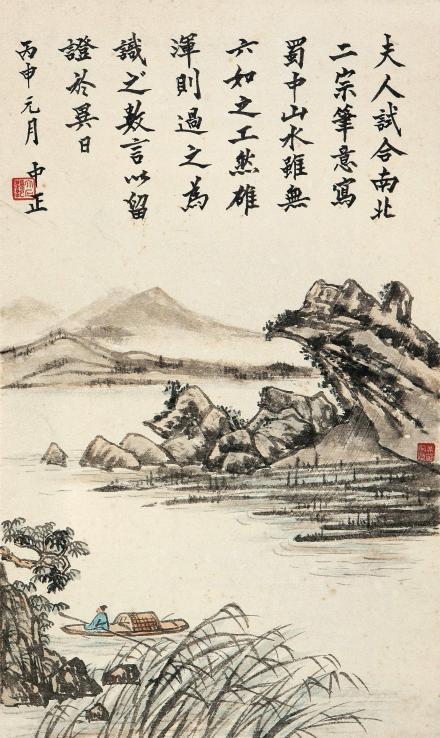 夫人試合南北
二宗筆意寫
蜀中山水雖無
六如之工然雄
渾則過之為
識之數言以留
證於異日
丙申元月 中正